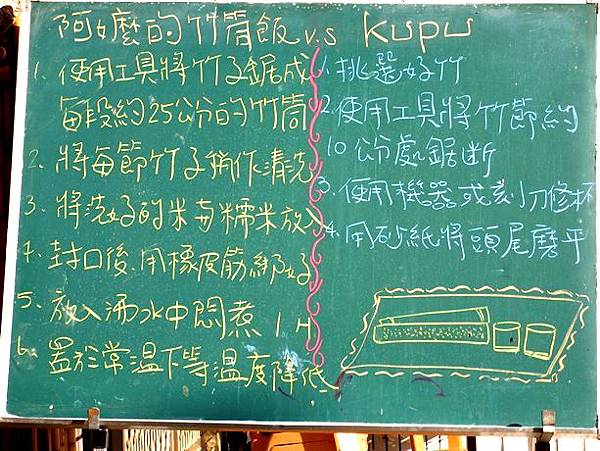 阿嬤的竹筒飯 v.s kupu
1. 使用工具將竹子鋸成
每段約25公分的竹筒
2. 將每節竹子稍作清洗
3. 將洗好的米與糯米放入
4. 封口後用橡皮筋綁好
5. 放入沸水中悶煮 1H
6. 置於常溫下等溫度降低
1. 挑選好竹
2. 使用工具將竹節約
10公分處鋸斷
3. 使用機器或刻刀修杯
4. 用砂紙將頭尾磨平